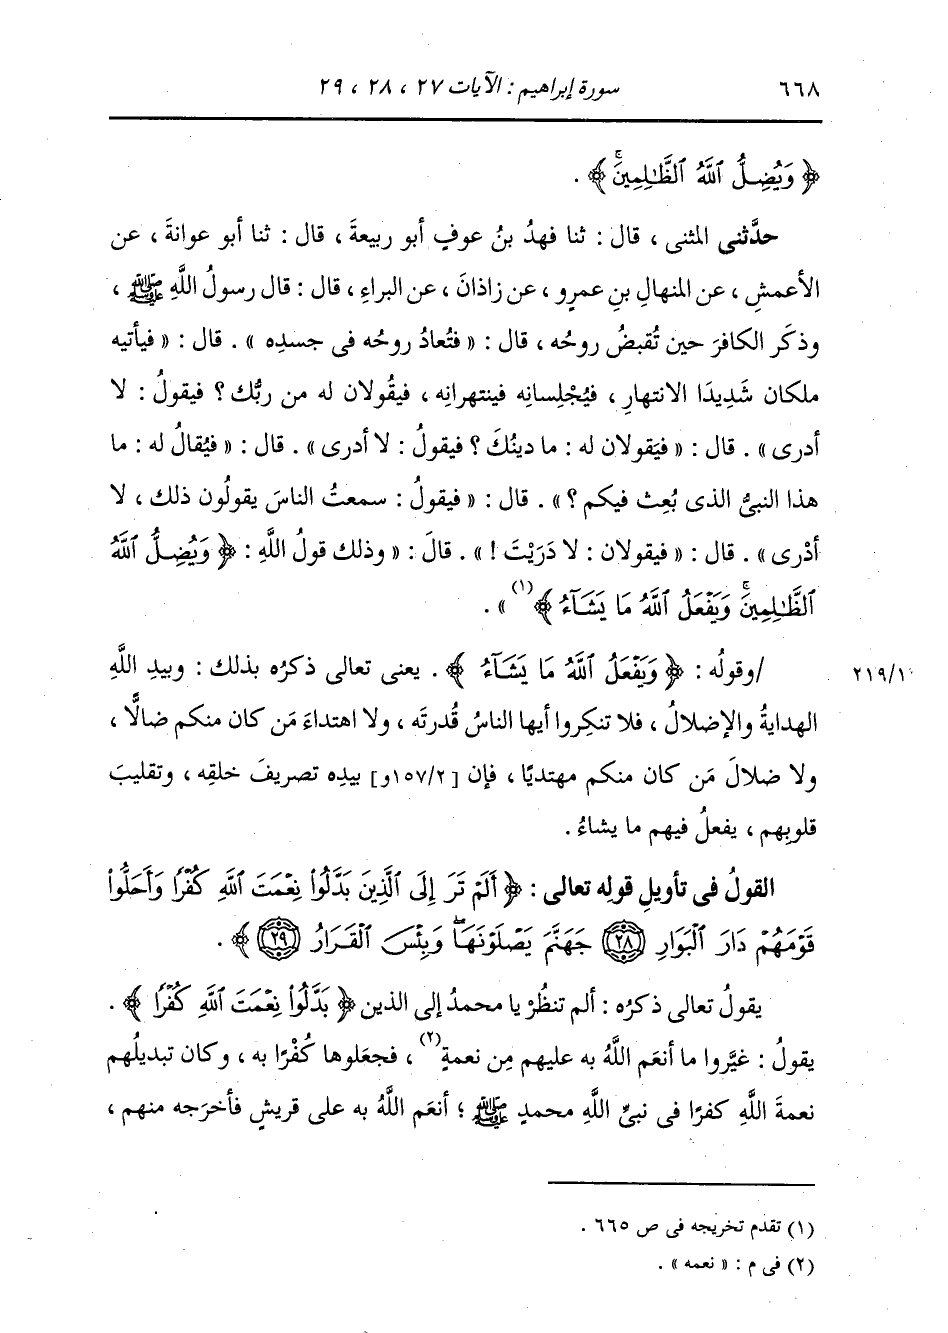 ٦٦٨ سورة إبراهيم : الآيات ٢٧ ، ٢٨ ، ٢٩
﴿ وَيُضِلُّ ٱللَّهُ ٱلظَّٰلِمِينَۚ ﴾ .
حدَّثنى المثنى ، قال : ثنا فهدُ بنُ عوفٍ أبو ربيعةَ ، قال : ثنا أبو عوانةَ ، عن
الأعمشِ ، عن المنهالِ بنِ عمرٍو ، عن زاذانَ ، عن البراءِ ، قال : قال رسولُ اللَّهِ ﷺ ،
وذكَر الكافرَ حين تُقبضُ روحُه ، قال : « فتُعادُ روحُه فى جسدِه » . قال : « فيأتيه
ملكان شَدِيدَا الانتهارِ ، فيُجْلِسانِه فينتهرانِه ، فيقُولان له من ربُّك ؟ فيقولُ : لا
أدرى » . قال : « فيَقولان له : ما دينُكَ ؟ فيقولُ : لا أدرى » . قال : « فيُقالُ له : ما
هذا النبىُّ الذى بُعِث فيكم ؟ » . قال : « فيقولُ : سمعتُ الناسَ يقولُون ذلك ، لا
أدْرى » . قال : « فيقولان : لا دَرَيْتَ ! » . قالَ : « وذلك قولُ اللَّهِ : ﴿ وَيُضِلُّ ٱللَّهُ
ٱلظَّٰلِمِينَۚ وَيَفْعَلُ ٱللَّهُ مَا يَشَآءُ ﴾ (١) » .
٢١٩/١٠ /وقولُه : ﴿ وَيَفْعَلُ ٱللَّهُ مَا يَشَآءُ ﴾ . يعنى تعالى ذكرُه بذلك : وبيدِ اللَّهِ
الهدايةُ والإضلالُ ، فلا تنكِروا أيها الناسُ قُدرتَه ، ولا اهتداءَ مَن كان منكم ضالًّا ،
ولا ضلالَ مَن كان منكم مهتديًا ، فإن [١٥٧/٢و] بيدِه تصريفَ خلقِه ، وتقليبَ
قلوبِهم ، يفعلُ فيهم ما يشاءُ .
القولُ فى تأويلِ قولِه تعالى : ﴿ أَلَمْ تَرَ إِلَى ٱلَّذِينَ بَدَّلُوا۟ نِعْمَتَ ٱللَّهِ كُفْرًا وَأَحَلُّوا۟
قَوْمَهُمْ دَارَ ٱلْبَوَارِ ٢٨ جَهَنَّمَ يَصْلَوْنَهَاۖ وَبِئْسَ ٱلْقَرَارُ ٢٩ ﴾ .
يقولُ تعالى ذكرُه : ألم تنظُرْ يا محمدُ إلى الذين ﴿ بَدَّلُوا۟ نِعْمَتَ ٱللَّهِ كُفْرًا ﴾ .
يقولُ : غيَّروا ما أنعَم اللَّهُ به عليهم مِن نعمةٍ (٢) ، فجعَلوها كُفْرًا به ، وكان تبديلُهم
نعمةَ اللَّهِ كفرًا فى نبىِّ اللَّهِ محمدٍ ﷺ ؛ أنعَم اللَّهُ به على قريشٍ فأخرَجه منهم ،
(١) تقدم تخريجه فى ص ٦٦٥ .
(٢) فى م : « نعمه » .